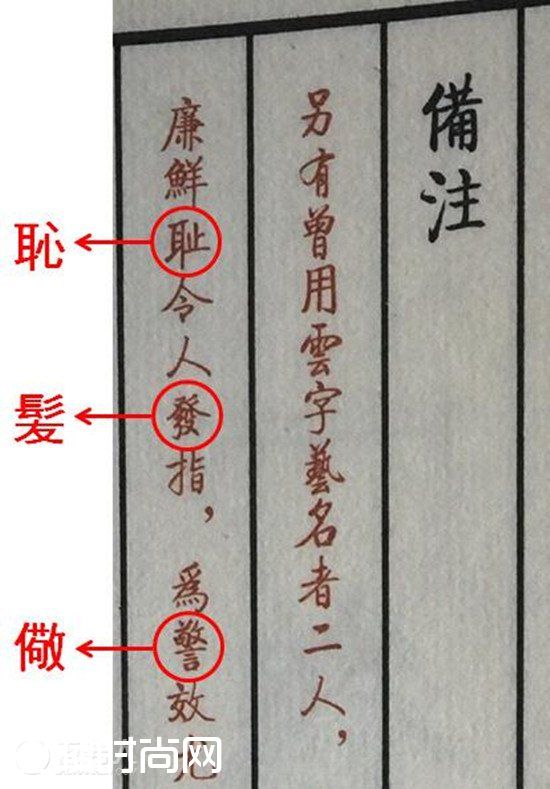 備注
另有曾用雲字藝名者二人，
廉鮮耻令人發指，為警效
恥
髪
儆
时尚网